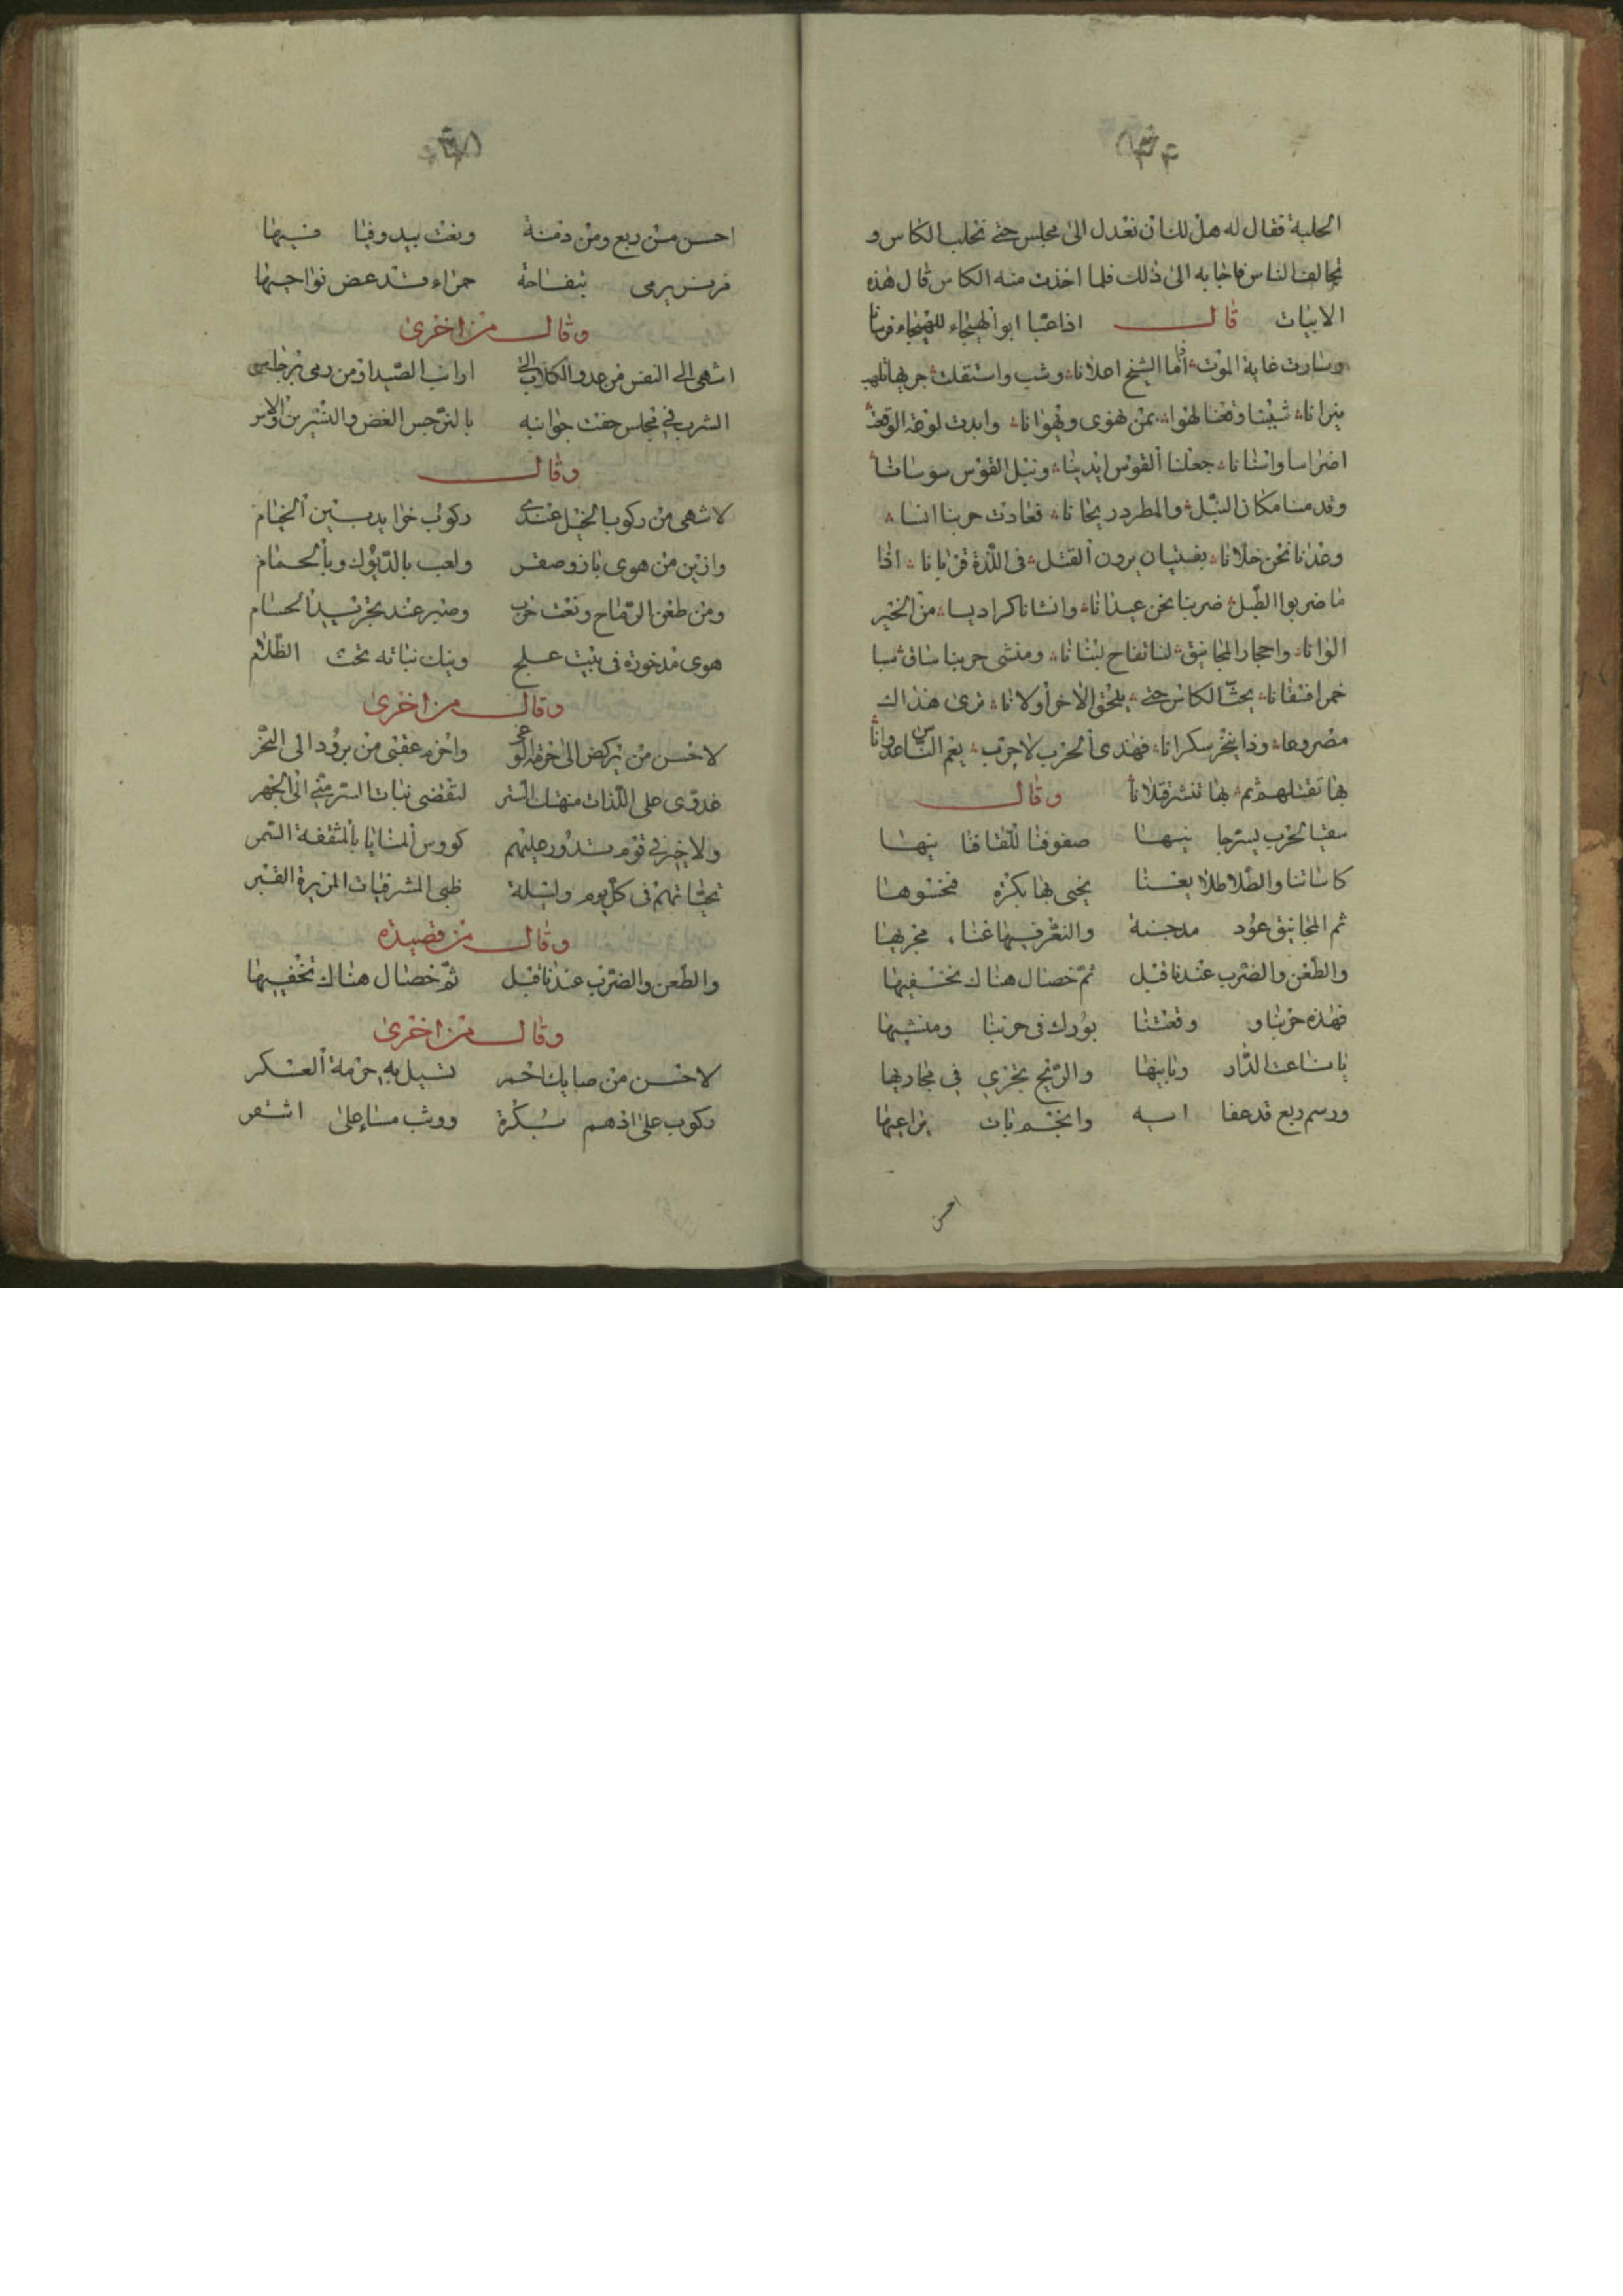 الحلبة فقال له هل لك ان نعدل الى مجلس حتى نحلب الكاس و
نخالف الناس فاجابه الى ذلك فلما اخذت منه الكاس قال هذه
الابيات قال اذا عبا ابو الهيجاء للهيجاء فرسانا
وسارت غاية الموت اما الشيخ اعلانا وشب واستقلت حربها تلهب
نيرانا شبينا وقعنا لهوا بمن نهوى ويهوانا وابدت لوعة الوقعة
اضراسا واسنانا جعلنا القوس ايدينا ونبل القوس سوسانا
وقدمنا مكان النبل والمطرد ريحانا فعادت حربنا انسا
وعدنا نحن خلانا بفتيان يرون القتل في اللذة قربانا اذا
ما ضربوا الطبل ضربنا نحن عيدانا وانشانا كراديسا من الخير
الوانا واحجار المجانيق لنا تفاح لبنانا ومنشى حربنا ساق سبا
خمرا فسقانا يحث الكاس حتى يلحق الاخر اولانا ترى هذاك
مصروعا وذا ينجر سكرانا فهذى الحرب لا حرب يغم الناس عدوانا
بها نقتلهم ثم بها ننشر قتلانا وقال
صفوفنا للقا فنا
كاساتنا والطلا طلايعنا يحيى بها بكرة فحسوها
ثم المجانيق عود مدجنة والنغر فيها غناء مجريها
والطعن والضرب عندنا قبل ثم خصال هناك نخفيها
فهذه حربنا و وقعتنا بورك في حربنا ومنشيها
يا ناعت الدار والريح تجري في مجاريها
ورسم ربع قد عفا
احسن
احسن من ربع ومن دمنة ونعت بيد وفيا فيها
بتفاحة حمراء قد عض نواحيها
وقال من اخرى
اشهى الى النفس من عدو الكلاب الى ارانب الصيد او من رمى برجاس
الشرب في مجلس حفت جوانبه بالنرجس الغض والنسرين والاس
وقال
لاشهى من ركوب الخيل عندى ركوب خرايد بين الخيام
وازين من هوى باز وصقر ولعب بالديوك وبالحمام
ومن طعن الرماح ونعت حرب وصبر عند تجريد الحسام
هوى مدخورة في بيت علج ونيك نباته تحت الظلام
وقال من اخرى
لاحسن من ركض الى حومة الوغى واحزم عقبى من برود الى النحر
غدوى على اللذات منهتك الستر لتقضى نبات السر منى الى الجهر
ولا خير في قوم تدور عليهم كووس المنايا بالمثقفة السمر
تحياتهم في كل يوم وليلة ظبى المشرفيات المزيرة القبر
وقال من قصيدة
والطعن والضرب عندنا قبل ثم خصال هناك نخفيها
وقال من اخرى
لاحسن من صبابك احمر تسيل به حومة العسكر
ركوب على ادهم بكرة ووثب مساء على اشقر